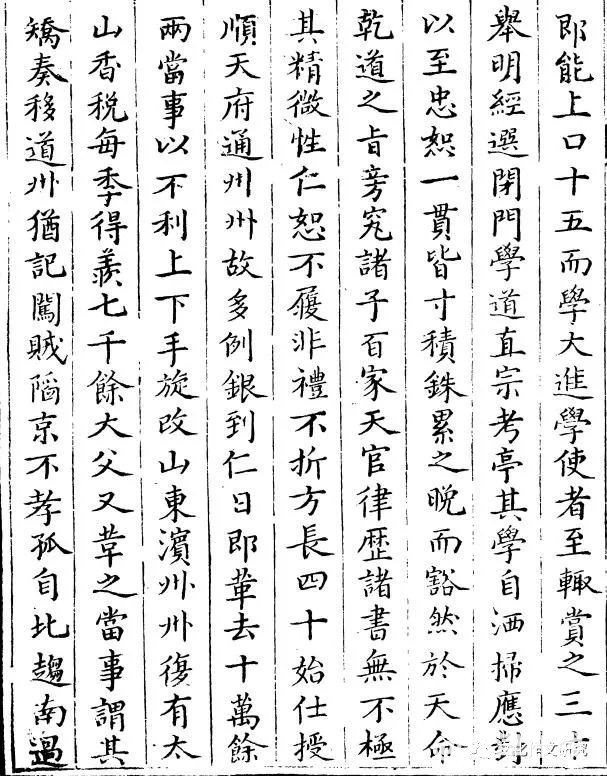 即能上口十五而學大進學使者至輙賞之三十
舉明經選閉門學道直宗考亭其學自洒掃應對
以至忠恕一貫皆寸積銖累之晚而豁然於天命
乾道之旨旁究諸子百家天官律歷諸書無不極
其精微性仁恕不履非禮不折方長四十始仕授
順天府通州州故多例銀到仁日即革去十萬餘
兩當事以不利上下手旋改山東濵州州復有太
山香稅每季得羨七千餘大父又革之當事謂其
矯奏移道州猶記闖賊陷京不孝孤自北趨南過